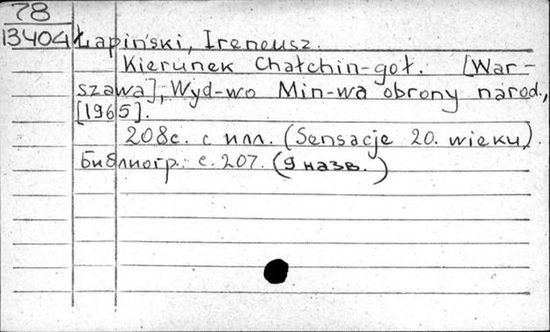 78
13404 Łapiński, Ireneusz.
Kierunek Chałchin-goł. [War-
szawa], Wyd-wo Min-wa obrony narod.,
[1965].
208с. с илл. (Sensacje 20. wieku).
Библиогр.: с. 207. (9 назв.)